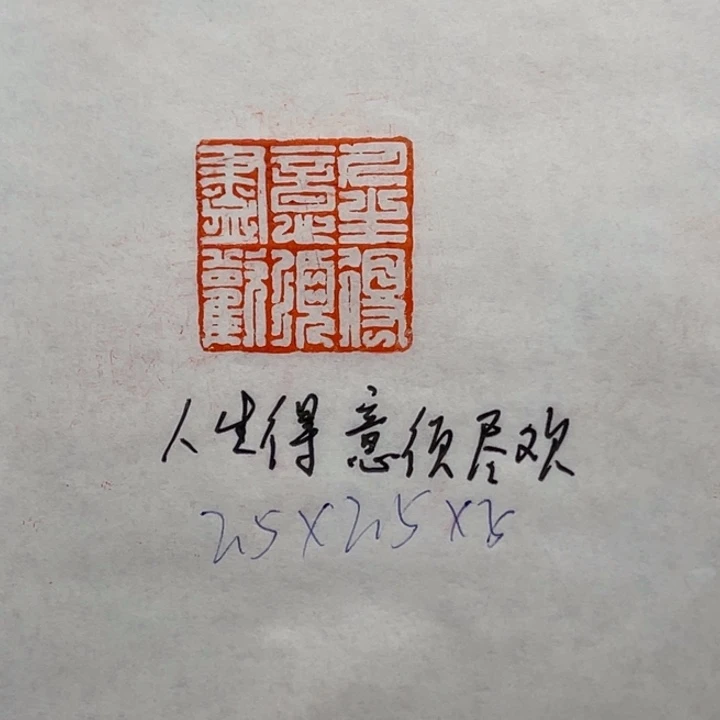 人生得意須盡歡
人生得意须尽欢
2.5×2.5×5